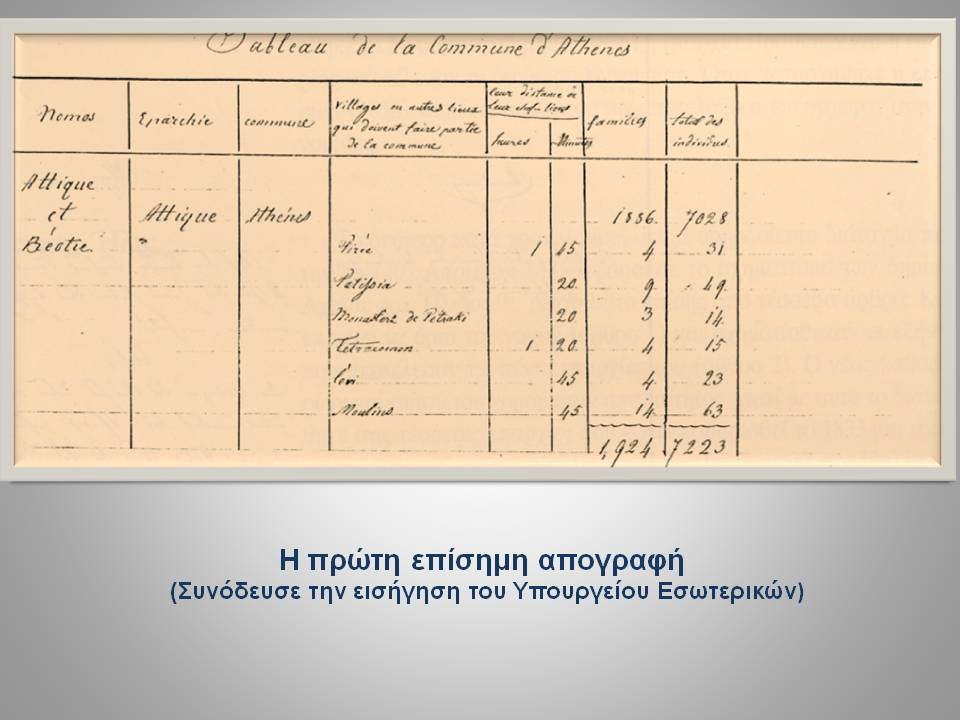 Tableau de la Commune d'Athènes
Nomos Eparchie commune villages ou autres lieux qui doivent faire partie de la commune leur distance de leur chef-lieux heures Minutes familles total des individus
Attique et Béotie Attique Athénes 1886. 7028
" Pirée 1 45 4 31
Patissia 20 9 49
Monastere de Pétraki 20 3 14
1 20 4 15
Lévi 45 4 23
Moulins 45 14 63
1,924 7223
Η πρώτη επίσημη απογραφή
(Συνόδευσε την εισήγηση του Υπουργείου Εσωτερικών)